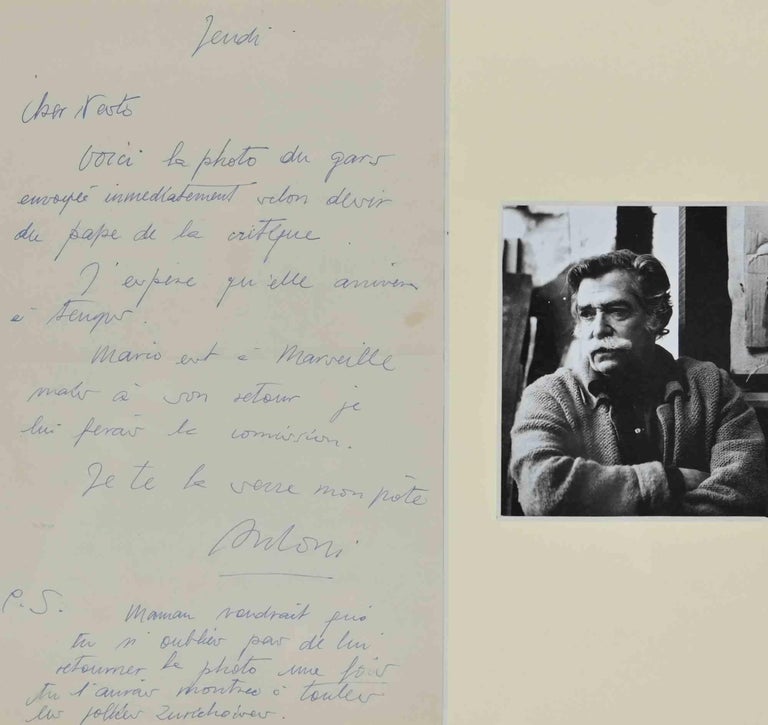 Jeudi
Cher Nesto
Voici la photo du gars
envoyée inmediatement selon
du pape de la critique.
J'espère qu'elle arrivera
à temps.
Mario est à Marseille
mais à son retour je
lui ferais la comission.
Je te la serre mon pôte
Antoni
P.S. Maman voudrait que
tu n'oublies pas de lui
retourner la photo une fois
tu l'auras montreé à toutes
les jolies Zurichoises.